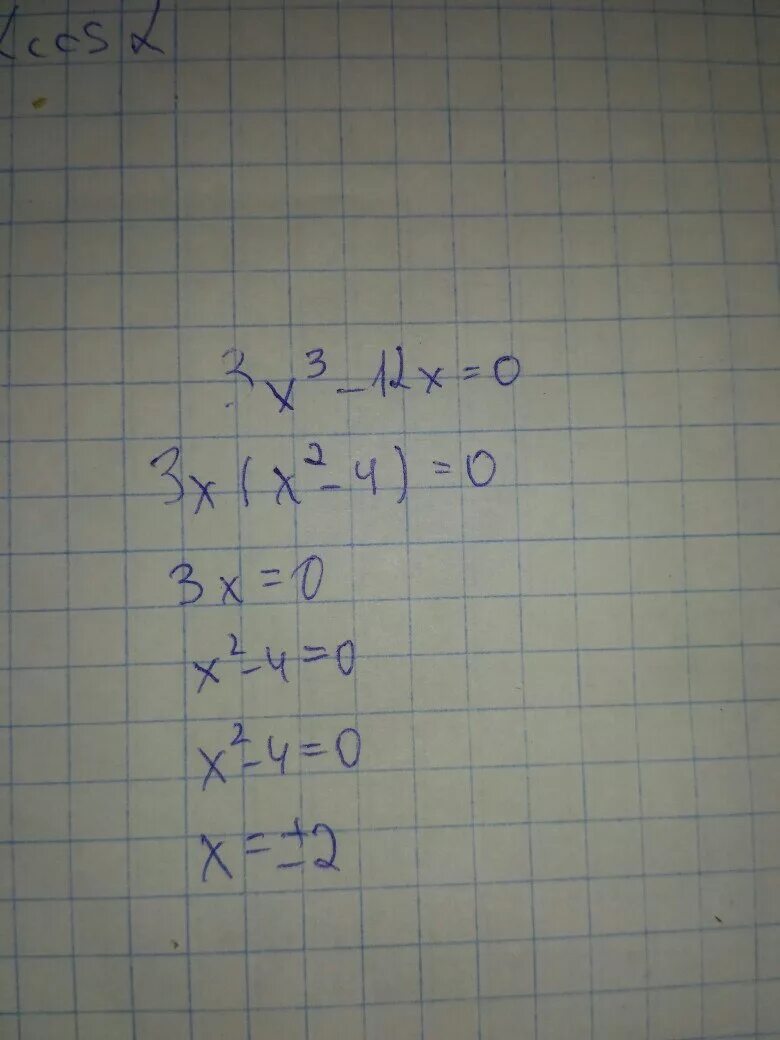 cos α
3x³ - 12x = 0
3x(x² - 4) = 0
3x = 0
x² - 4 = 0
x² - 4 = 0
x = ±2